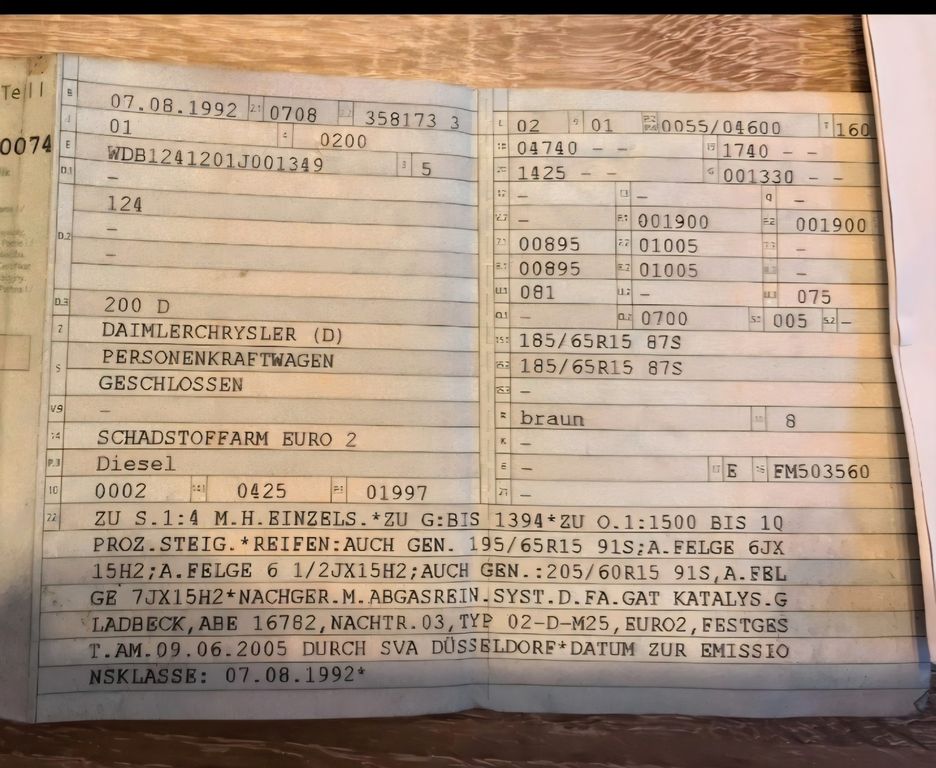 Teil I
0074
B 07.08.1992 2.1 0708 2.2 358173 3
J 01 4 0200
E WDB1241201J001349 3 5
D.1 –
124
D.2 –
–
D.3 200 D
2 DAIMLERCHRYSLER (D)
5 PERSONENKRAFTWAGEN
GESCHLOSSEN
V.9 –
14 SCHADSTOFFARM EURO 2
P.3 Diesel
10 0002 14.1 0425 P.1 01997
L 02 9 01 P.2 P.4 0055/04600 T 160
18 04740 – – 19 1740 – –
20 1425 – – G 001330 – –
12 – 13 – Q –
V.7 – F.1 001900 F.2 001900
7.1 00895 7.2 01005 7.3 –
8.1 00895 8.2 01005 8.3 –
U.1 081 U.2 – U.3 075
O.1 – O.2 0700 S.1 005 S.2 –
15.1 185/65R15 87S
15.2 185/65R15 87S
15.3 –
R braun 11 8
K –
6 – 17 E 16 FM503560
21 –
22 ZU S.1:4 M.H.EINZELS.*ZU G:BIS 1394*ZU O.1:1500 BIS 10
PROZ.STEIG.*REIFEN:AUCH GEN. 195/65R15 91S;A.FELGE 6JX
15H2;A.FELGE 6 1/2JX15H2;AUCH GEN.:205/60R15 91S,A.FEL
GE 7JX15H2*NACHGER.M.ABGASREIN.SYST.D.FA.GAT KATALYS.G
LADBECK,ABE 16782,NACHTR.03,TYP 02-D-M25,EURO2,FESTGES
T.AM.09.06.2005 DURCH SVA DÜSSELDORF*DATUM ZUR EMISSIO
NSKLASSE: 07.08.1992*